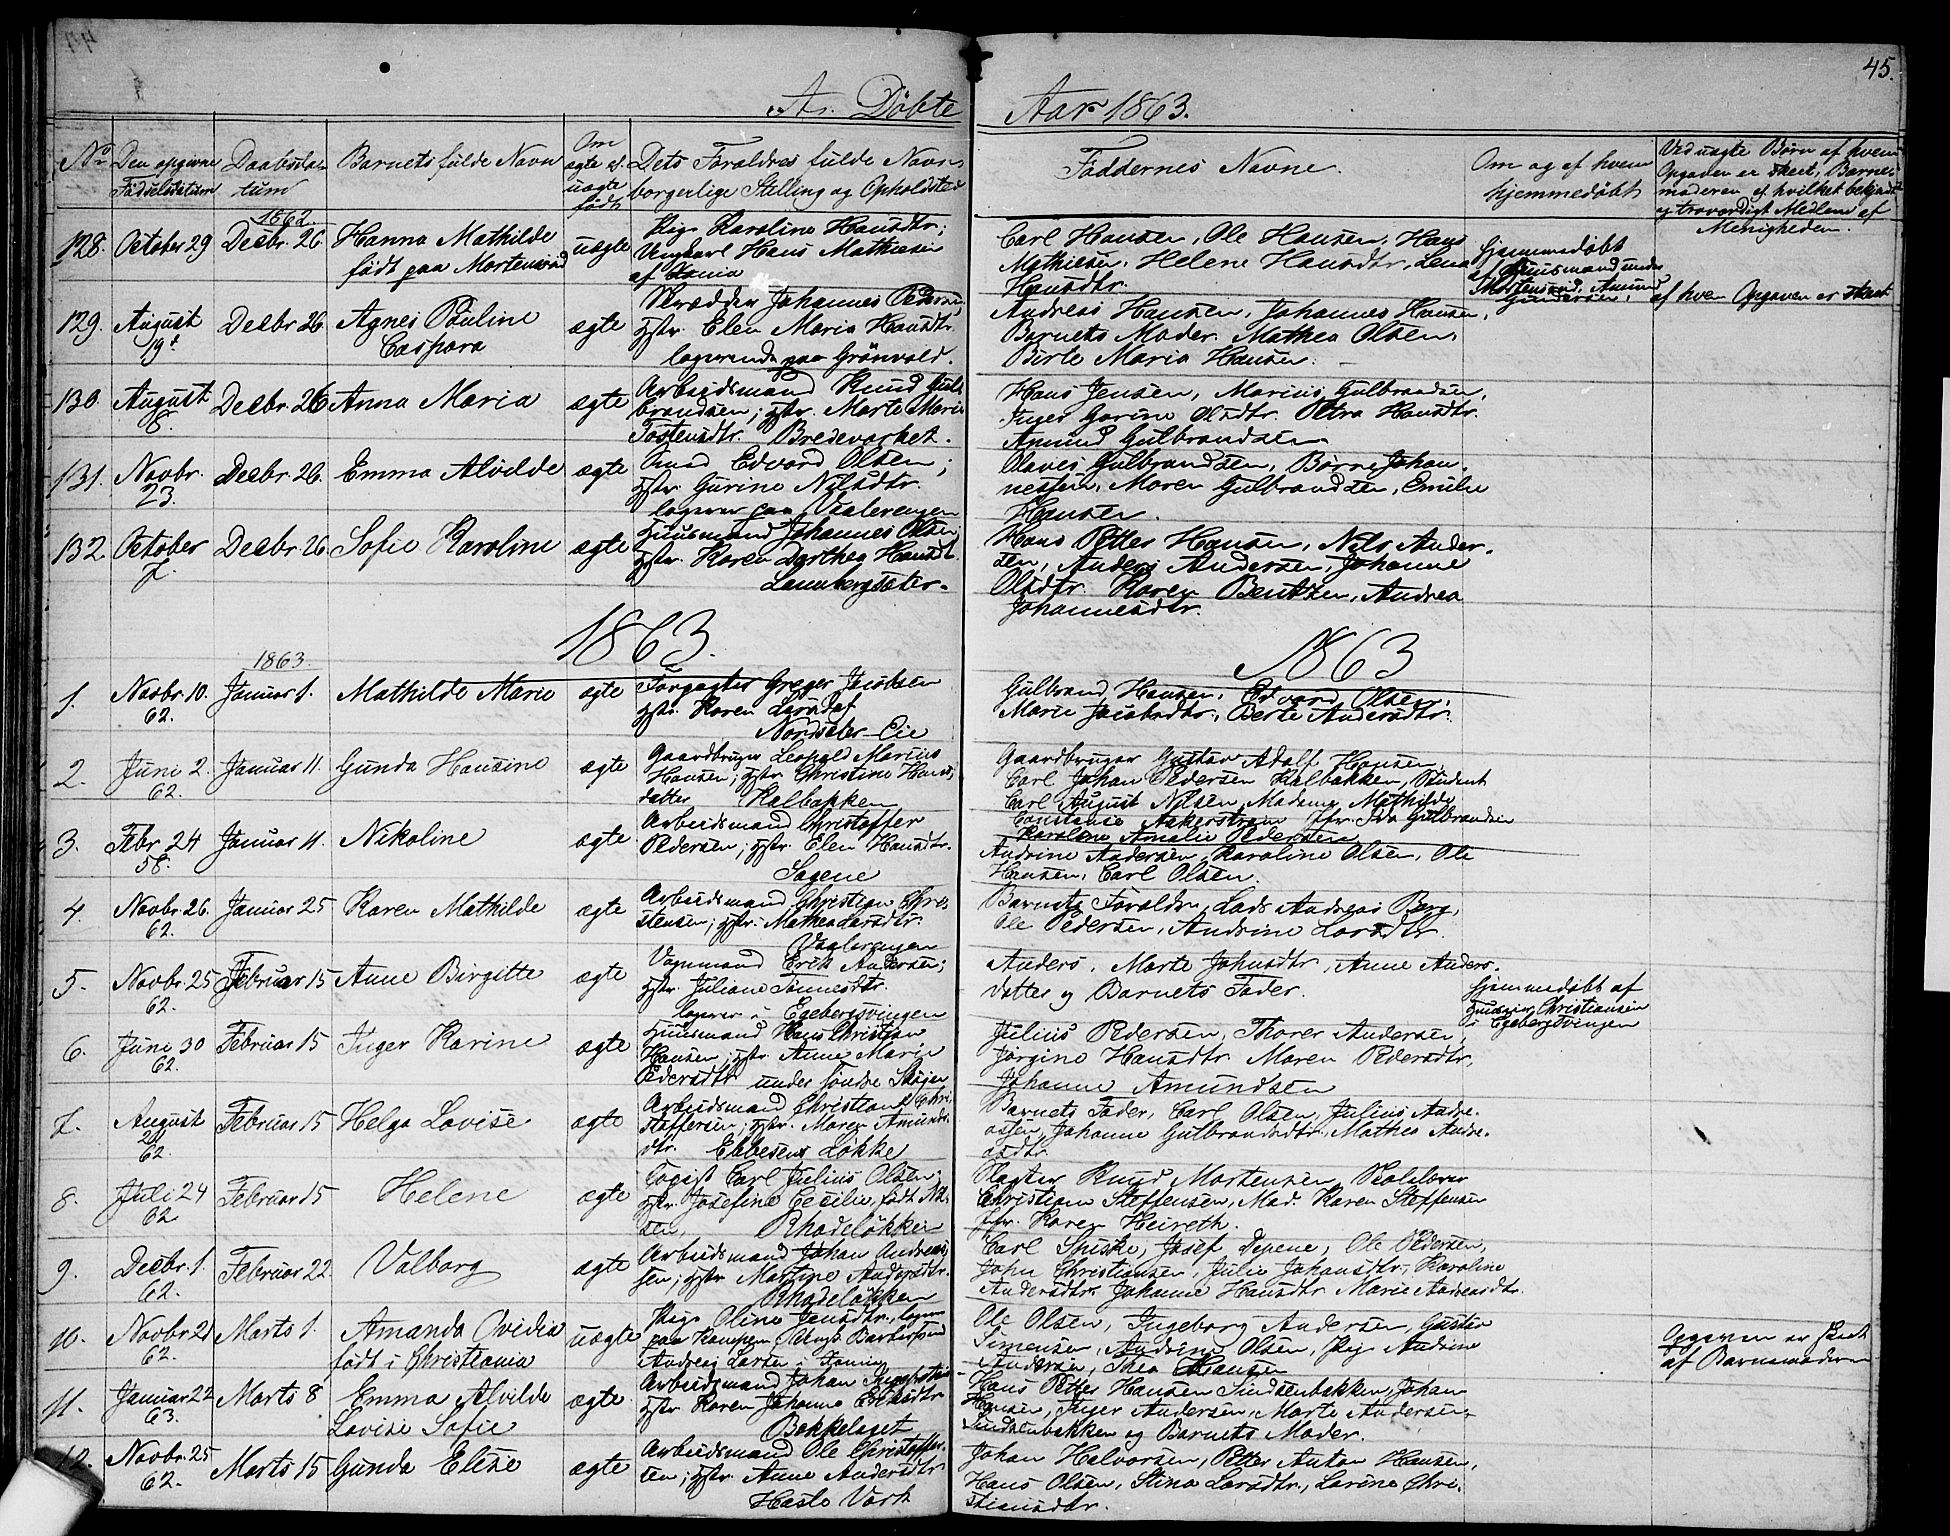 45.
Döbte Aar 1863.
No Den opgivne Fødselsdatum
Daabsdatum
Barnets fulde Navn
Om ægte el. uægte født
Dets Forældres fulde Navn borgerlige Stilling og Opholdsted
Faddernes Navne.
Om og af hvem hjemmedøbt
Ved uægte Børn af hvem Opgaven er skeet, Barnemoderen ej hvilket bekjendt og troværdigt Medlem af Menigheden.
1862.
128. October 29 Decbr. 26 Hanna Mathilde uægte Pige Karoline Hansdtr;
født paa Mortensrud Ungkarl Hans Mathiesen
af
Carl Hansen, Ole Hansen, Hans
Mathiesen, Helene Hansdtr, Lena
Hansdtr.
Hjemmedøbt
af Huusmand under
Mortensrud, Amund
Gundersen,
af hvem Opgaven er skeet
129. August 19 Decbr 26 Agnes Pauline ægte Skrædder Johannes Pedersen,
Caspara Hstr. Elen Maria Hansdtr.
logerende paa Grönvold.
Andreas Hansen, Johannes Hansen,
Barnets Moder. Mathea Olsen,
Birte Maria Hansen.
130. August 8. Decbr. 26 Anna Maria ægte Arbeidsmand Knud Gul-
brandsen; Hstr. Marte Marie
Tostensdtr. Bredevarket.
Hans Jensen, Marius Gulbrandsen,
Inger Gorine Olsdtr. Petra Hansdtr.
Amund Gulbrandsen
131. Novbr. 23. Decbr. 26. Emma Alvilde ægte Smed Edvard Olsen;
Hstr. Gurine Nilsdtr.
logerer paa Vaalerengen
Olaves Gulbrandsen, Børre Johan-
nessen, Maren Gulbrandsen, Emilie
Hansen.
132. October 7. Decbr 26 Sofie Karoline ægte Huusmand Johannes Olsen;
Hstr. Karen Dorthea Hansdt.
Lambergsæter.
Hans Petter Hansen, Nils Ander-
sen, Anders Andersen, Johanne
Olsdtr. Karen Bentsen, Andrea
Johannesdtr.
1863. 1863
1863.
1. Novbr. 10. 62. Januar 1. Mathilde Marie ægte Forpagter Greger Jacobsen
Hstr. Karen Larsdat
Nordsæter Eie
Gulbrand Hansen, Edvard Olsen,
Marie Jacobsdtr, Berte Andersdtr.
2. Juni 2. 62. Januar 11. Gunda Hansine ægte Gaardbruger Leopold Marius
Hansen; Hstr. Christine Hans-
datter Kalbakken
Gaardbruger Gustav Adolf Hansen,
Carl Johan Pedersen Kalbakken, Student
Carl August Nilsen, Madame Mathilde
Constance Akerstrøm Jfr. Ida Gulbrandsen
Karoline Amalie Pedersen
3. Febr 24 58. Januar 11. Nikoline ægte Arbeidsmand Christoffer
Pedersen; Hstr. Elen Hansdtr.
Sagene
Andrine Andersen, Karoline Olsen, Ole
Hansen, Carl Olsen.
4. Novbr. 26. 62. Januar 25 Karen Mathilde ægte Arbeidsmand Christian Chri-
stensen; Hstr. Mathea Larsdtr.
Vaalerengen
Barnets Forældre, Lads Andreas Berg,
Ole Pedersen, Andrine Larsdtr.
5. Novbr. 25 62. Februar 15 Anne Birgitte ægte Vognmand Erik Andersen;
Hstr. Juliane Tønnesdtr.
logerer i Egebergsvingen
Anders, Marte Johnsdtr, Anne Anders-
datter og Barnets Fader.
Hjemmedøbt af
Christiansen
i Egebergsvingen
6. Juni 30 62. Februar 15 Inger Karine ægte Huusmand Hans Christian
Hansen; Hstr. Anne Marie
Pedersdtr under Søndre Skøjen
Julius Pedersen, Thorer Andersen,
Jørgine Hansdtr. Maren Pedersdtr,
Johanne Amundsen
7. August 24 62. Februar 15 Helga Lovise ægte Arbeidsmand Christian Chri-
stoffersen; Hstr. Maren Amunds-
dtr. Ebbesens Løkke
Barnets Fader, Carl Olsen, Julius Andre-
asen, Johanne Gulbrandsdtr, Mathea Andre-
asdtr.
8. Juli 24 62. Februar 15 Helene ægte Logist Carl Julius Olsen;
Hstr. Josefine Cecilie, født Nil-
sen, Rhodeløkken
Slagter Knud Mortensen, Skolelærer
Christian Steffensen, Mad. Karen Steffensen
Jfr. Karen Heireth.
9. Decbr. 1. 62. Februar 22 Valborg ægte Arbeidsmand Johan Andreas-
sen; Hstr. Martine Andersdtr.
Rhodeløkken
Carl Spiske, Josef Depene, Ole Pedersen,
John Christiansen, Julie Johansdtr, Karoline
Andersdtr. Johanne Hansdtr Marie Andreasdtr.
10. Novbr. 21 62. Marts 1. Amanda Ovidia uægte Pige Oline Jensdtr, loger
født i Christiania paa Kampen
Andreas Larsen i
Ole Olsen, Ingeborg Andersen, Gustav
Simensen, Andrine Olsen, Pige Andrine
Andersen, Thea Hansen
Opgaven er skeet
af Barnemoderen
11. Januar 22 63. Marts 8 Emma Alvilde ægte Arbeidsmand Johan
Lovise Sofie Hstr. Karen Johanne Eriksdtr
Bekkelaget
Hans Petter Hansen Sinsenbakken, Johan
Hansen, Inger Andersen, Marte Andersen,
Sinsenbakken og Barnets Moder.
12. Novbr. 25 62. Marts 15 Gunda Elise ægte Arbeidsmand Ole Christoffer-
sen; Hstr. Anne Andersdtr
Hasle Værk
Johan Halvorsen, Petter Anton Hansen,
Hans Olsen, Stina Larsdtr., Lorine Chri-
stiansdtr.